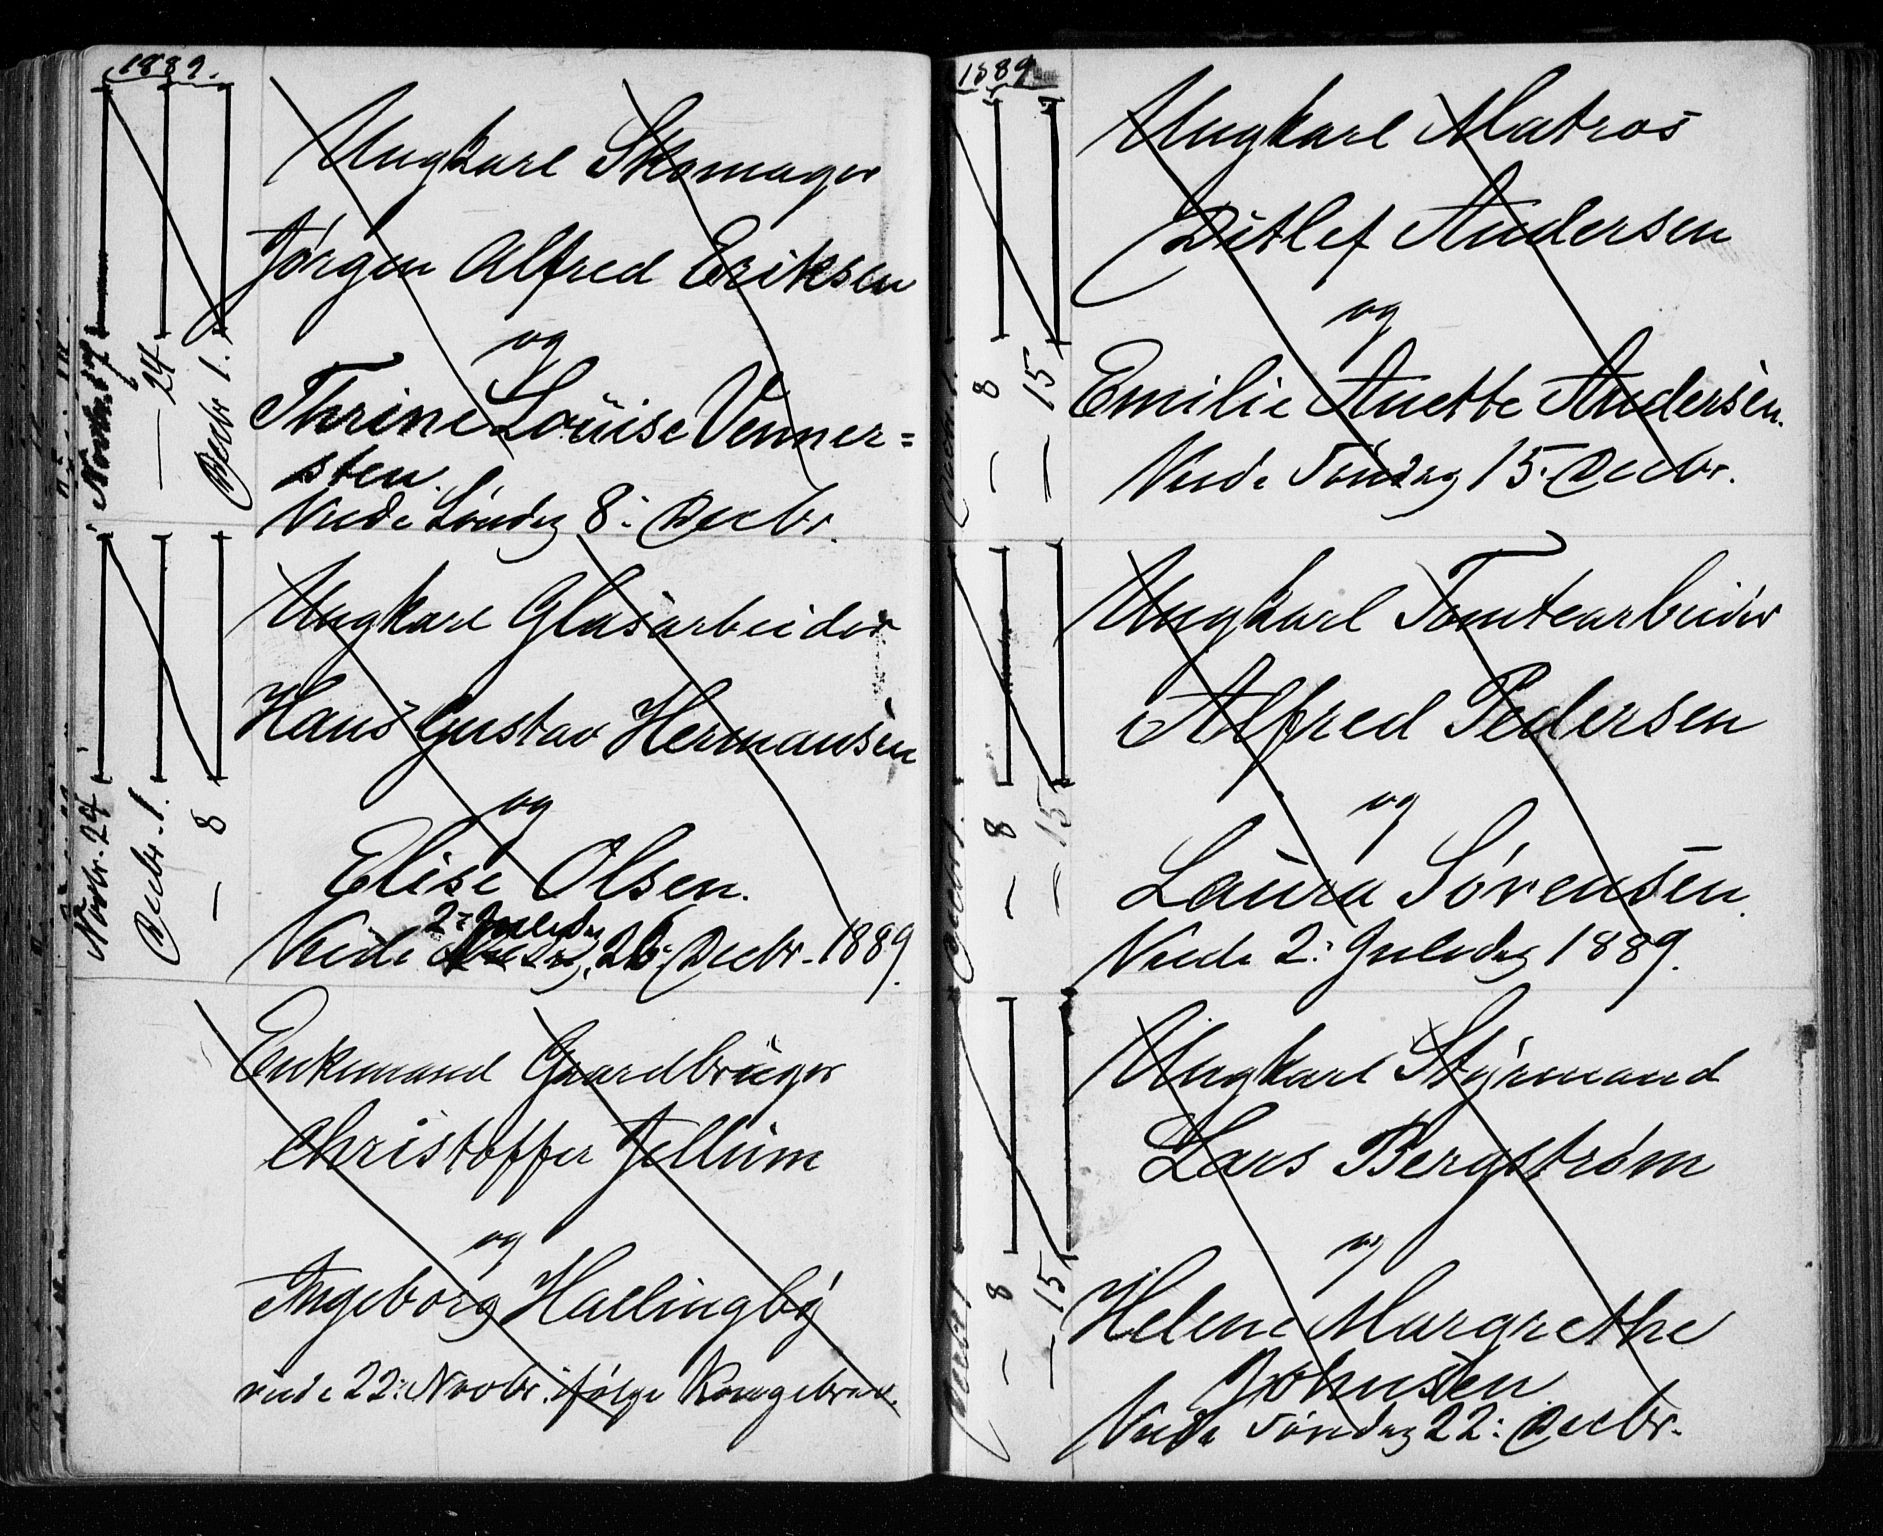 1889.
Novbr. 17
— 24
Decbr 1.
Ungkarl Skomager
Jørgen Alfred Eriksen
og
Thrine Louise Venner=
sten.
Viede Søndag 8: Decbr.
Novbr. 24
Decbr. 1.
— 8
Ungkarl Glasarbeider
Hans Gustav Hermansen
og
Elise Olsen.
2: Juledag
Viede 26: Decbr. 1889.
Enkemand Gaardbruger
Christoffer Jellum
og
Ingeborg Hallingby
viede 22: Novbr. ifølge Kongebrev.
1889
Decbr 1.
— 8
— 15
Ungkarl Matros
Ditlef Andersen
og
Emilie Anette Andersen.
Viede Søndag 15. Decbr.
Decbr 1.
— 8
— 15
Ungkarl Tomtearbeider
Alfred Pedersen
og
Laura Sørensen.
Viede 2: Juledag 1889.
Decbr 1
— 8
— 15
Ungkarl Styrmand
Lars Bergstrøm
og
Helene Margrethe
Johnsen
Viede Søndag 22: Decbr.